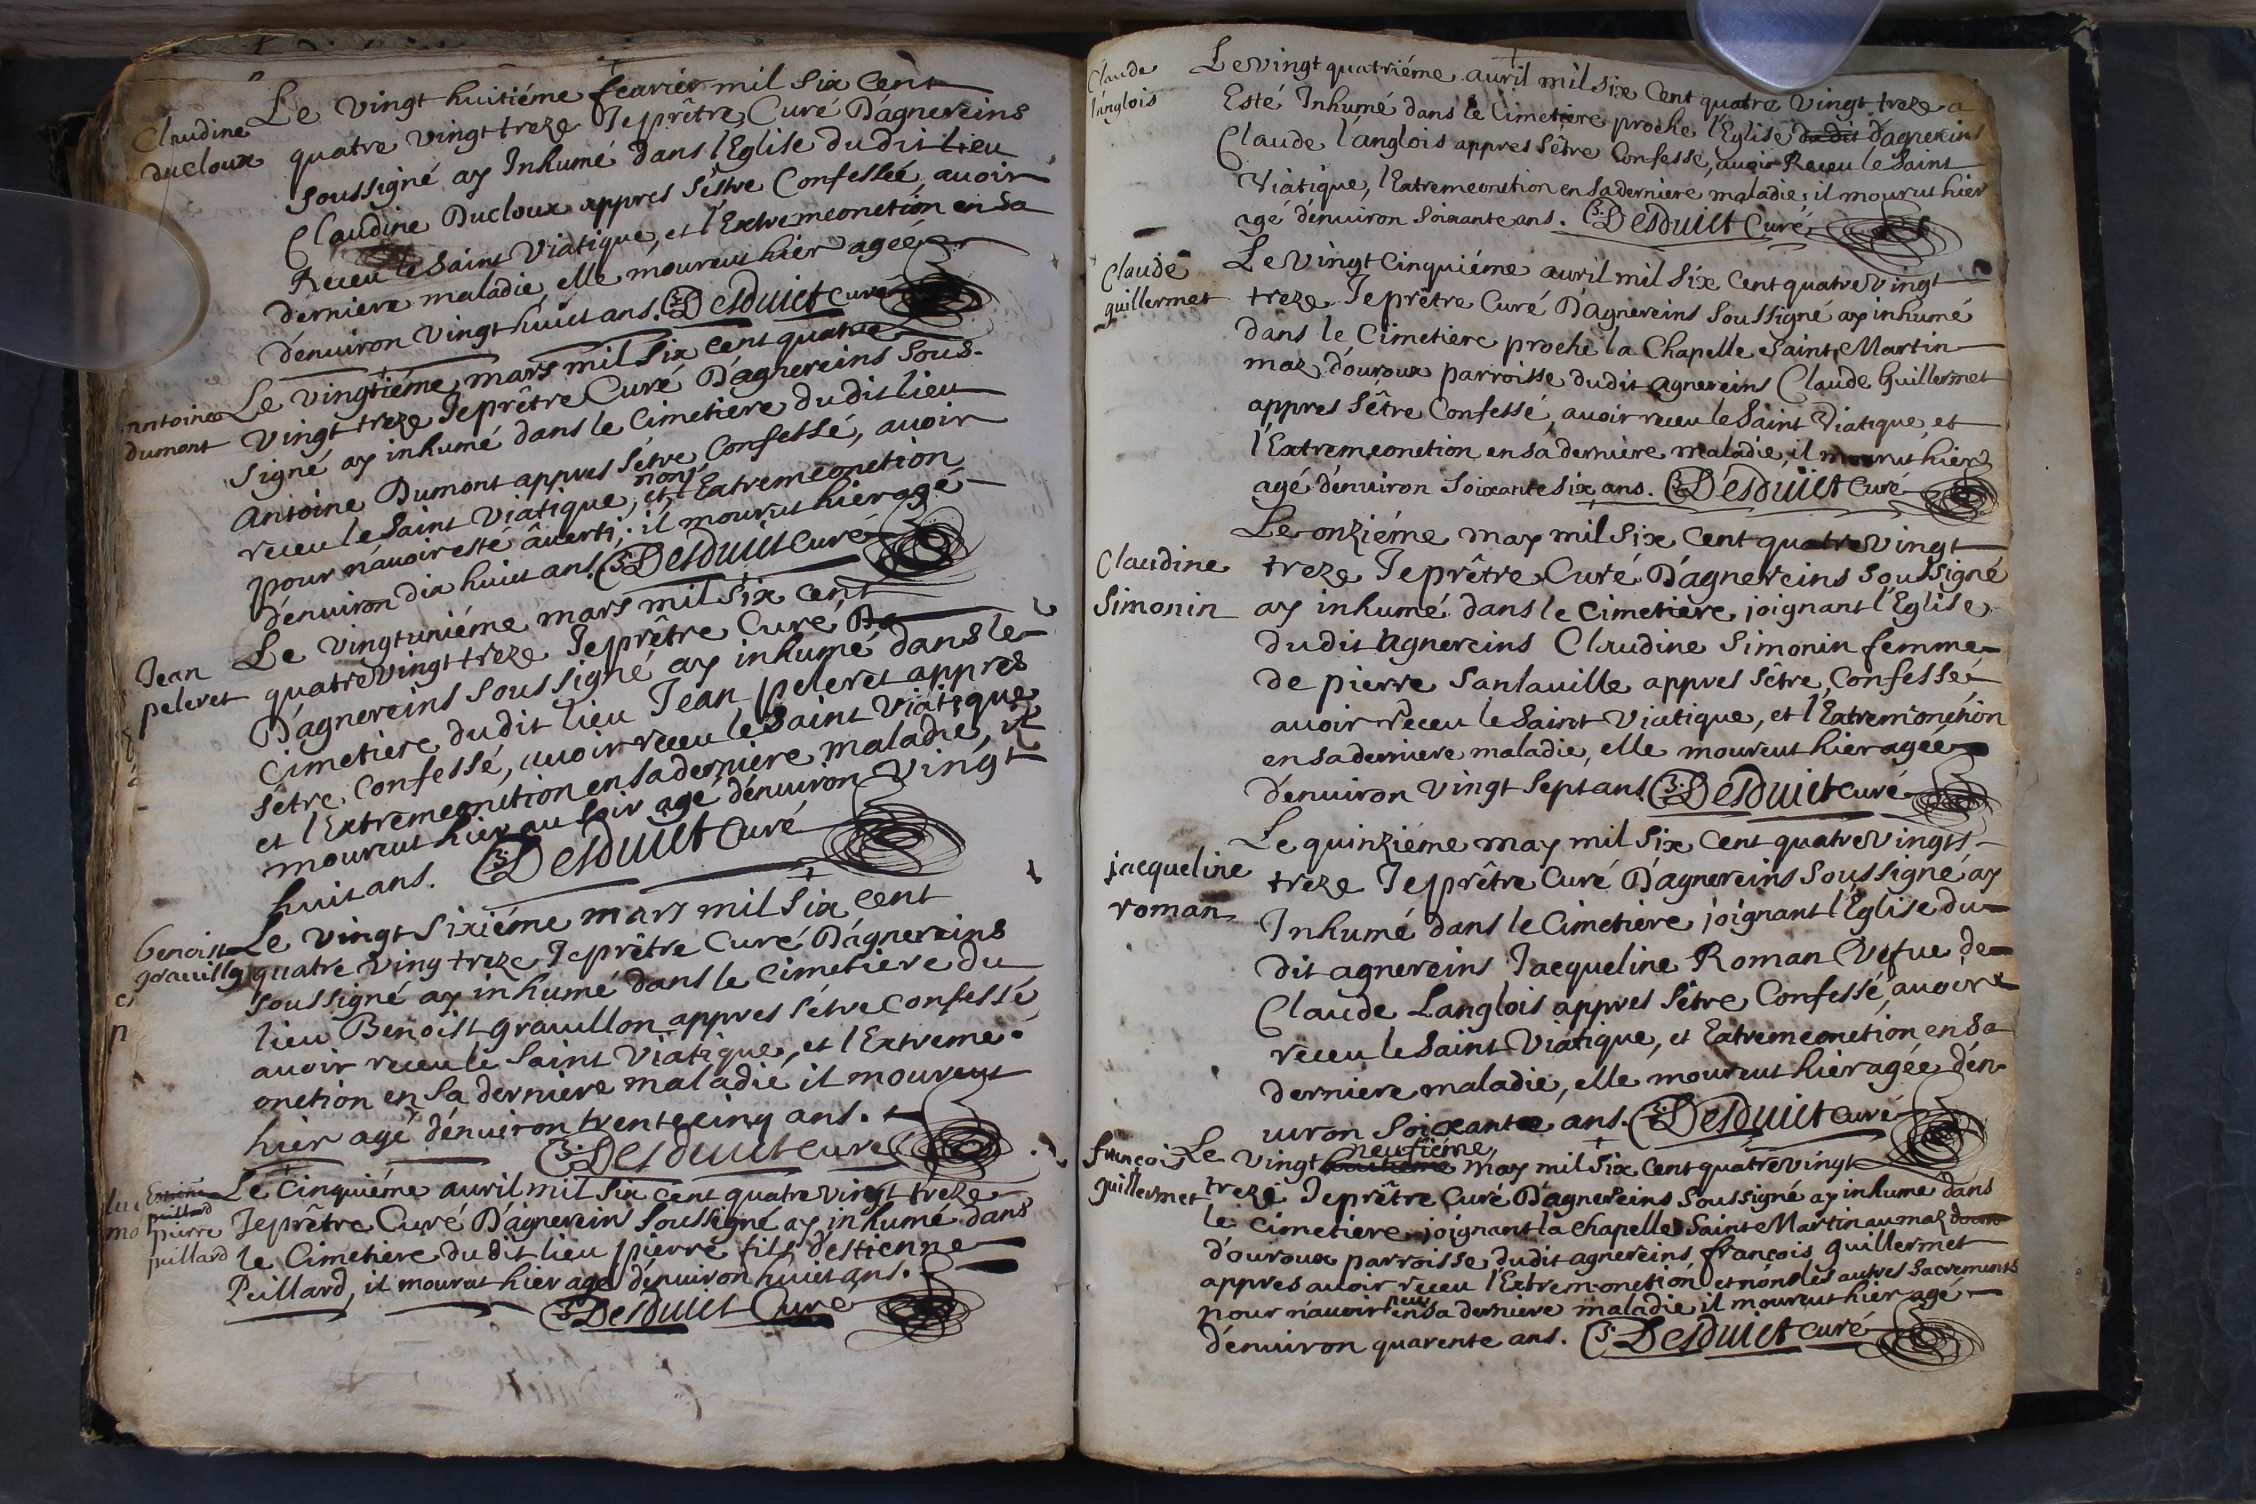 Claudine
ducloux
Le vingt huitiéme fevrier mil six cent
quatre vingt treze Je prêtre Curé D'agnereins
soussigné ay Inhumé dans l'Eglise du dit lieu
Claudine Ducloux appres s'éstre Confessée avoir
Receu le Saint Viatique, et l'Extremeonction en sa
derniere maladie, elle mourut hier ageé
d'enuiron vingt huict ans. Desduict Curé
antoine
dumont
Le vingtiéme mars mil six cent quatre
vingt treze Je prêtre Curé D'agnereins sous-
signé ay inhumé dans le Cimetiere du dit lieu
antoine Dumont appres s'étre Confessé, auoir
receu le Saint Viatique, et non l'Extremeonction
pour n'auoir esté auerti; il mourut hier agé
d'enuiron dix huict ans. Desduict Curé
Jean
peleret
Le vingtuniéme mars mil six cent
quatre vingt treze Je prêtre Curé
D'agnereins soussigné ay inhumé dans le
Cimetiere du dit lieu Jean peleret appres
s'étre Confessé, auoir receu le Saint Viatique
et l'Extremeonction en sa derniere maladie, il
mourut hier au soir agé d'enuiron vingt
huit ans. Desduict Curé
benoist
grauillo
Le vingt sixiéme mars mil six cent
quatre ving treze Je prêtre Curé D'agnereins
soussigné ay inhumé dans le Cimetiere du
lieu Benoist grauillon appres s'étre Confessé
auoir receu le Saint Viatique, et l'Extreme
onction en sa derniere maladie il mourut
hier agé d'enuiron trente cinq ans.
Desduict Curé
pierre
puillard
Le Cinquiéme auril mil six cent quatre vingt treze
Je prêtre Curé D'agnereins soussigné ay inhumé dans
le Cimetiere du dit lieu pierre fils d'estienne
Peillard, il mourut hier agé d'enuiron huict ans.
Desduict Curé
Claude
l'anglois
Le vingt quatriéme auril mil six Cent quatre vingt treze a
Esté Inhumé dans le Cimetiere proche l'Eglise du dit d'agnereins
Claude l'anglois appres s'étre Confessé, auoir Receu le Saint
Viatique, l'Extremeonction en sa derniere maladie; il mourut hier
agé d'enuiron soixante ans. Desduict Curé
Claude
guillermet
Le vingt Cinquiéme auril mil six Cent quatre vingt
treze Je prêtre Curé D'agnereins soussigné ay inhumé
dans le Cimetiere proche la Chapelle Saint Martin
maz d'ouroux parroisse dudit agnereins Claude Guillermet
appres s'être Confessé, auoir receu le Saint Viatique, et
l'Extremeonction en sa derniere maladie, il mourut hier
agé d'enuiron soixante six ans. Desduict Curé
Claudine
Simonin
Le onziéme may mil six Cent quatre vingt
treze Je prêtre Curé D'agnereins soussigné
ay inhumé dans le Cimetiere joignant l'Eglise
du dit agnereins Claudine Simonin femme
de pierre Sanlauille appres s'être Confessé
auoir Receu le Saint Viatique, et l'Extrem'onction
en sa derniere maladie, elle mourut hier ageé
d'enuiron vingt sept ans. Desduict Curé
jacqueline
roman
Le quinziéme may mil six Cent quatre vingts
treze Je prêtre Curé D'agnereins soussigné ay
Inhumé dans le Cimetiere joignant l'Eglise du
dit agnereins Jacqueline Roman Vefue de
Claude Langlois appres s'étre Confessé, auoir
receu le Saint Viatique, et Extremeonction en sa
derniere maladie, elle mourut hier agée d'en-
uiron soixante ans. Desduict Curé
françois
guillermet
Le vingt neufiéme may mil six Cent quatre vingt
treze Je prêtre Curé D'agnereins soussigné ay inhumé dans
le Cimetiere joignant la chapelle Saint Martin au maz
d'ouroux parroisse dudit agnereins françois guillermet
appres auoir receu l'Extrem-onction et non les autres Sacrements
pour n'auoir en sa derniere maladie il mourut hier agé
d'enuiron quarente ans. Desduict Curé